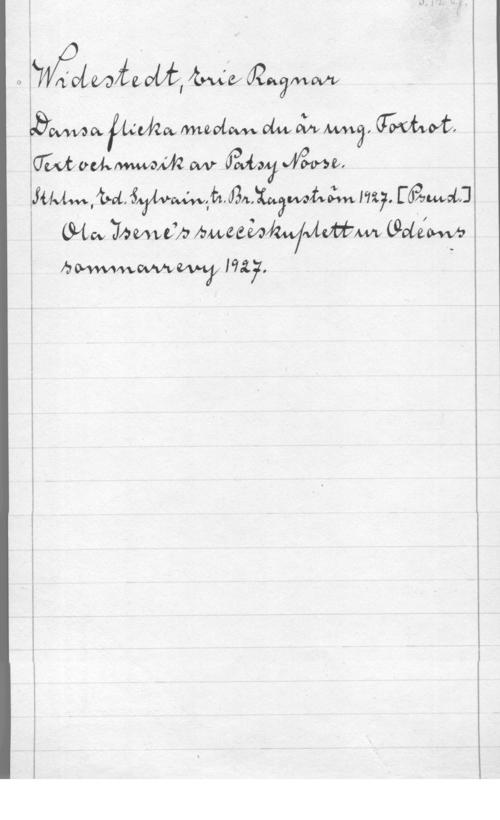 Widestedt, Eric Ragnar
Dansa flicka medan du är ung. Foxtrot.
Text och musik av Patsy Noose.
Sthlm, Ed. Sylvain, tr. Br. Lagerström 1927. [Pseud.]
Ola Isene's succèskuplett ur Odéons
sommarrevy 1927.